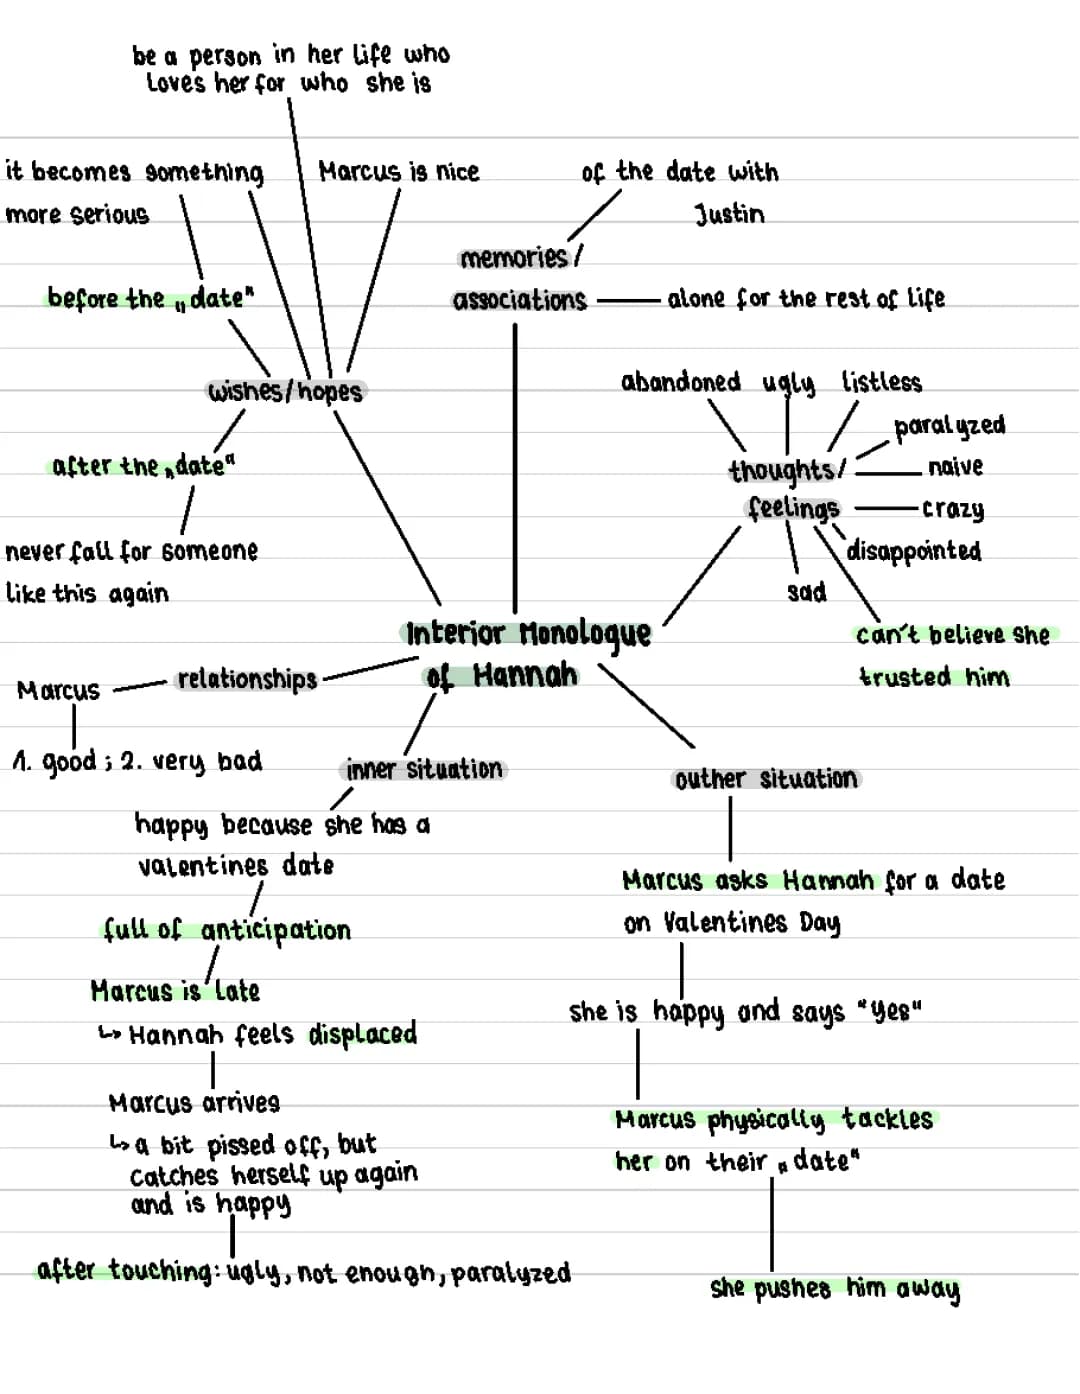 be a person in her life who
loves her for who she is
it becomes something
more serious
Marcus is nice
of the date with
Justin
memories/
associations
alone for the rest of life
before the „date"
wishes/hopes
after the „date"
never fall for someone
like this again
abandoned ugly listless
paralyzed
thoughts/
naive
feelings
crazy
disappointed
sad
can't believe she
trusted him
Interior Monologue
of Hannah
relationships
Marcus
1. good ; 2. very bad
inner situation
happy because she has a
valentines date
full of anticipation
Marcus is late
↳ Hannah feels displaced
Marcus arrives
↳ a bit pissed off, but
catches herself up again
and is happy
after touching: ugly, not enough, paralyzed
outher situation
Marcus asks Hannah for a date
on Valentines Day
she is happy and says "yes"
Marcus physically tackles
her on their „date"
she pushes him away